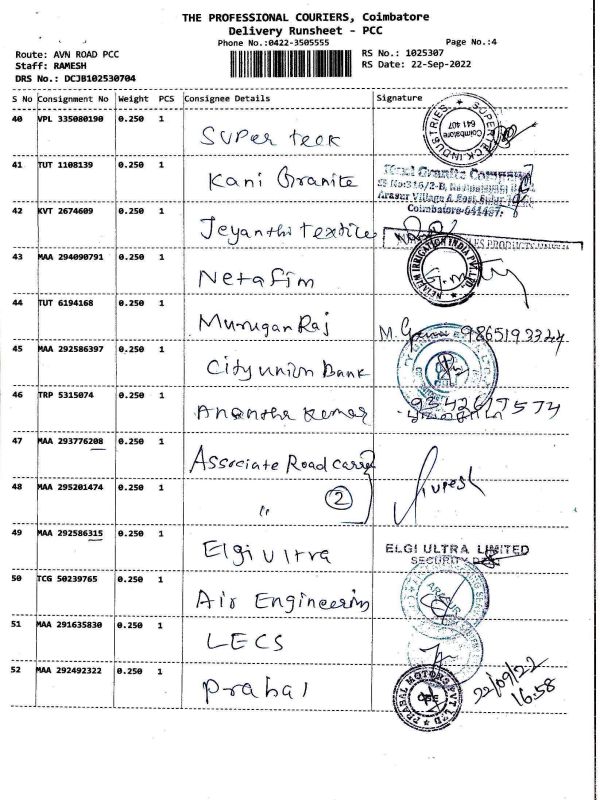 THE PROFESSIONAL COURIERS, Coimbatore
Delivery Runsheet - PCC
Phone No.:0422-3505555
Page No.:4
Route: AVN ROAD PCC
RS No.: 1025307
Staff: RAMESH
RS Date: 22-Sep-2022
DRS No.: DCJB102530704
S No Consignment No Weight PCS Consignee Details Signature
40 VPL 335080190 0.250 1
Super teck
SUPER TECK INDUSTRIES
Coimbatore
641 407
41 TUT 1108139 0.250 1
Kani Granite
Granite Company
Coimbatore-641407.
42 KVT 2674609 0.250 1
Jeyanthi textile
43 MAA 294090791 0.250 1
Netafim
NETAFIM IRRIGATION INDIA PVT. LTD.
44 TUT 6194168 0.250 1
Murugan Raj
M.
45 MAA 292586397 0.250 1
City union Bank
46 TRP 5315074 0.250 1
Anantha kumar
47 MAA 293776208 0.250 1
Associate Road
48 MAA 295201474 0.250 1
" 2
49 MAA 292586315 0.250 1
Elgi ultra
ELGI ULTRA LIMITED
SECURITY
50 TCG 50239765 0.250 1
Air Engineering
51 MAA 291635830 0.250 1
LECS
52 MAA 292492322 0.250 1
Prabal
PRABAL MOTORS PVT LTD
CBE
22/09/22
16.58